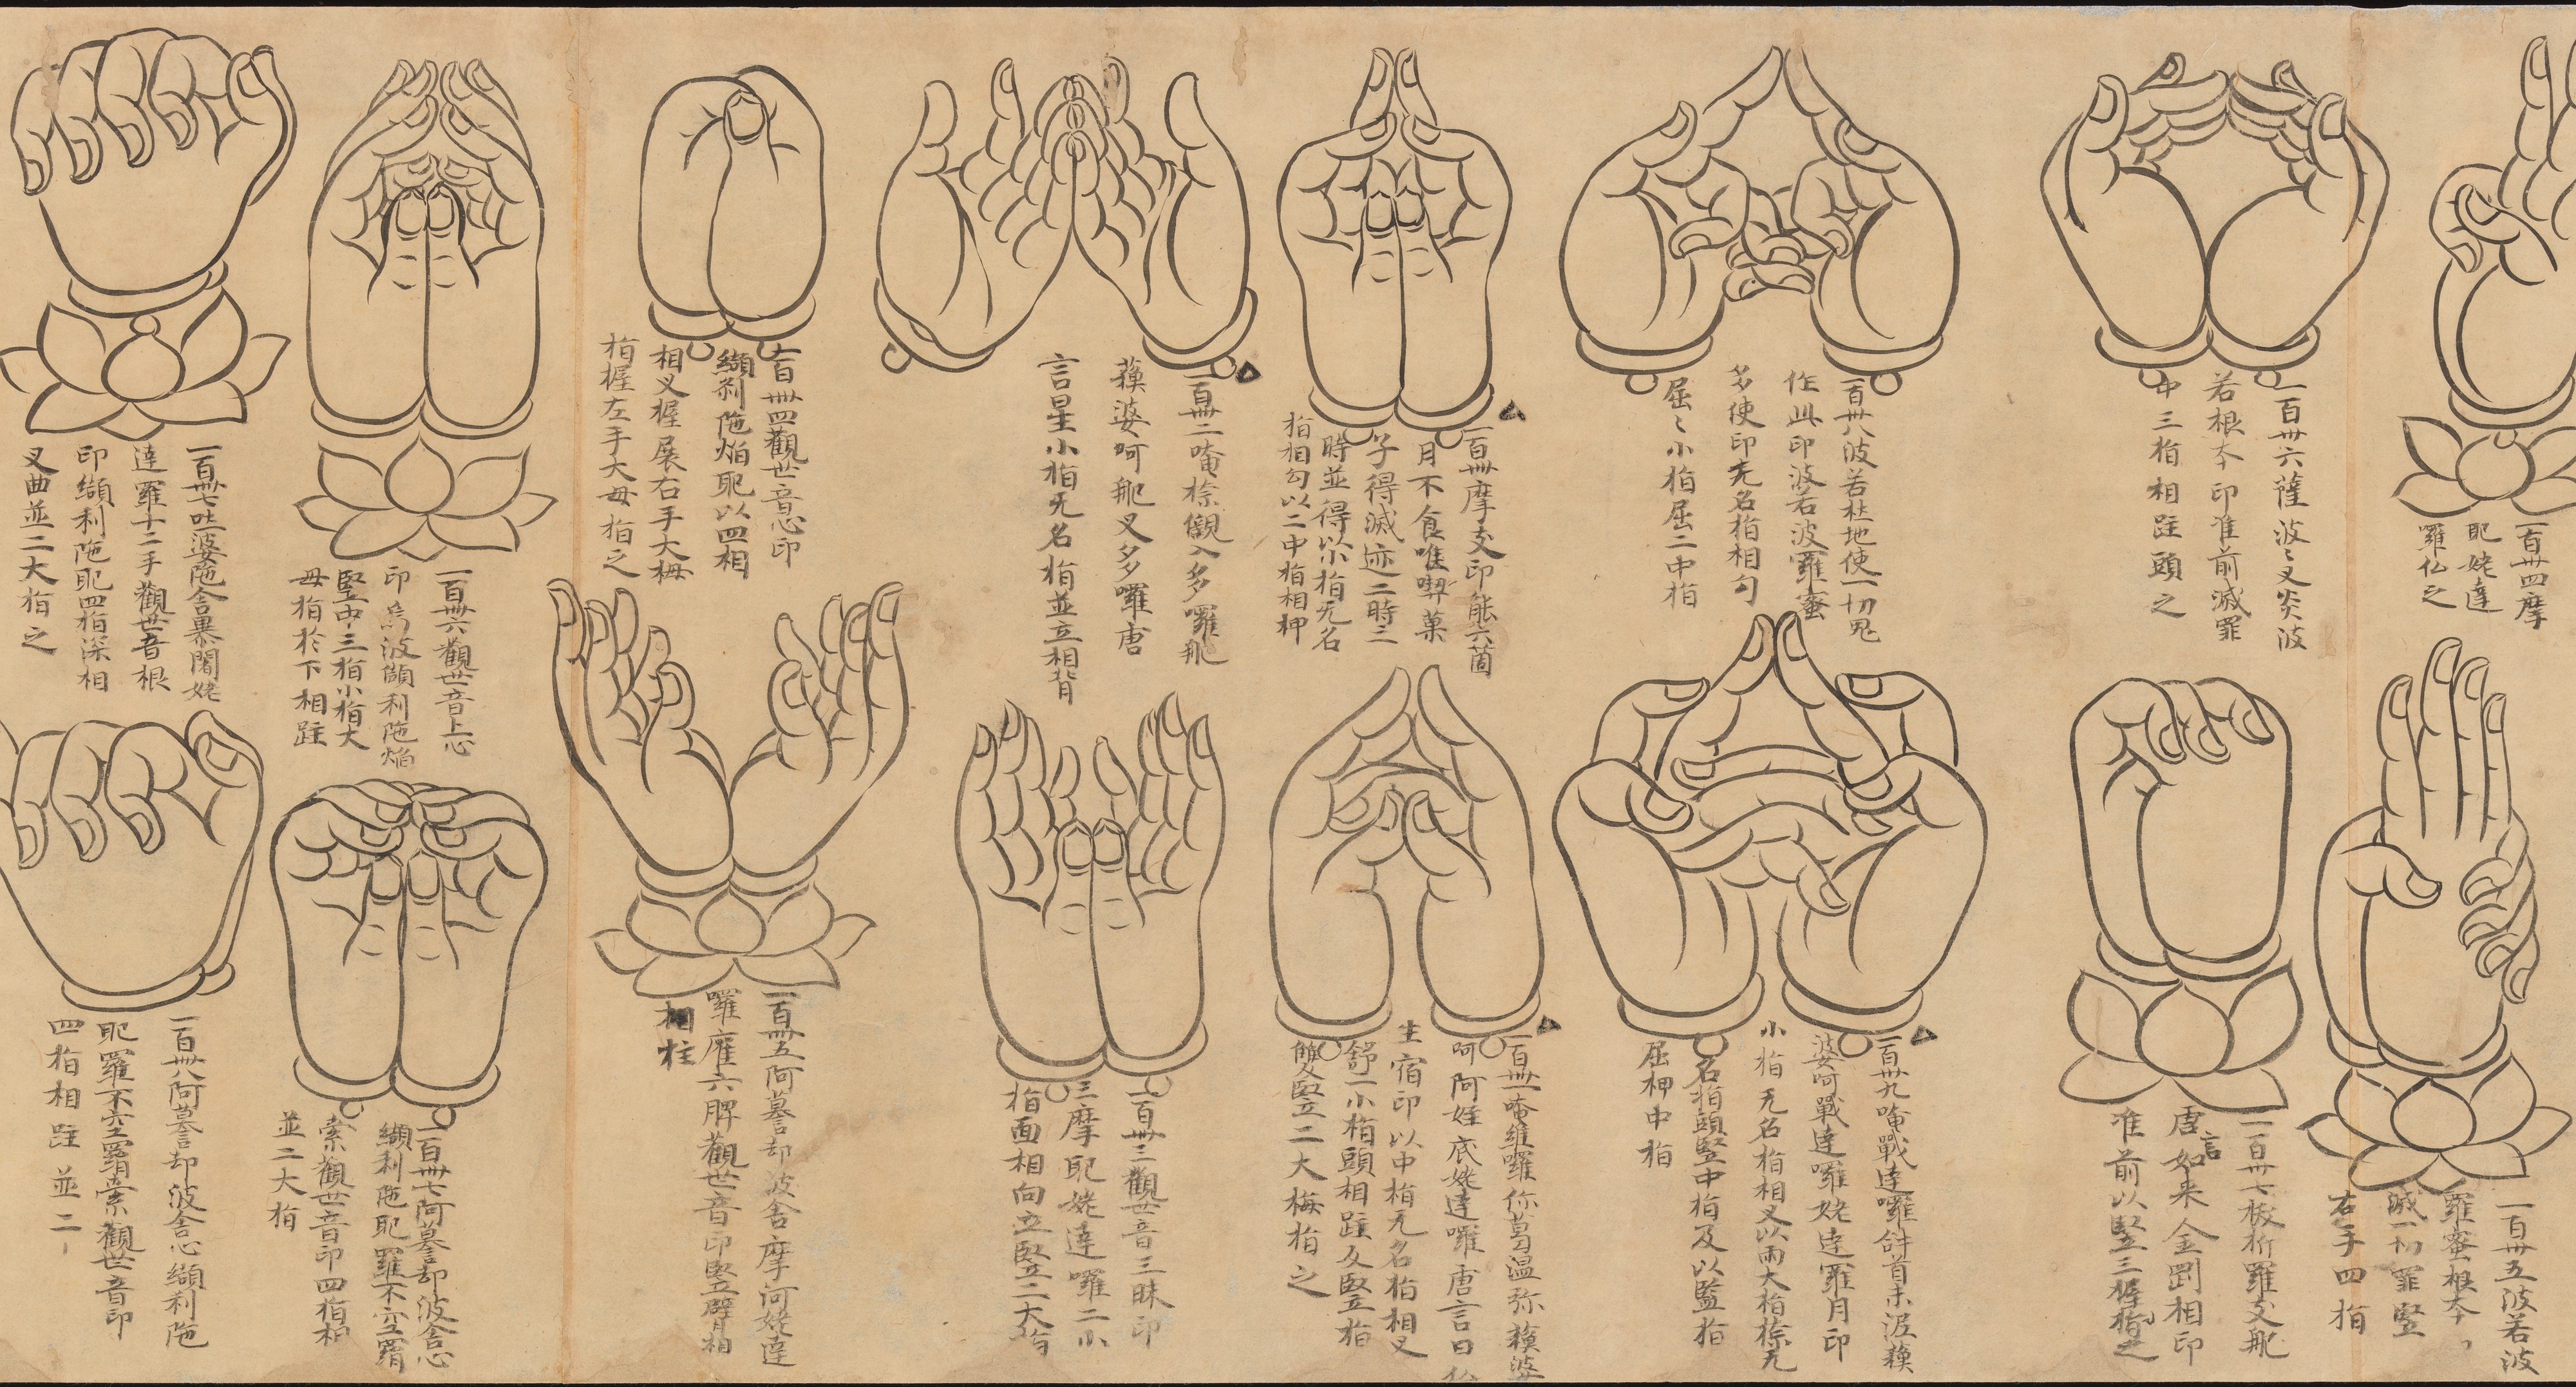 一百卌四摩
睚姥達
羅仏之
一百卅五波若波
羅蜜根本
滅一切罪竪
右手四指
一百卅六薩波〻叉炎波
若根本印准前滅罪
中三指相跓頭之
一百卅七板折羅交毗
唐言如来金罰相印
准前以竪三握指之
一百卅八波若杜地使一切鬼
作此印波若波羅蜜
多使印无名指相勾
屈〻小指屈二中指
一百卅九唵戰達囉
婆呵戰達羅姥達羅月印
小指无名指相叉以兩大指捺无
名指頭竪中指及以監指
屈柙中指
一百卌摩支印能六箇
月不食唯喫菓
子得滅迹二時三
時並得以小指无名
指相勾以二中指相柙
一百卌一唵維囉你葛温弥
呵阿姪底姥達囉唐言日
生宿印以中指无名指相叉
舒一小指頭相跓及竪指
雙竪二大栂指之
一百卌二唵捺
蘓婆呵毗叉多囉唐
言星小指无名指並立相背
一百卌三觀世音三昧印
三摩睚姥達羅二小
指面相向立竪二大指
一百卌四觀世音心印
纈利陁焰睚以四相
相叉握展右手大栂
指握左手大母指之
一百卌五阿慕却波舍摩河姥達
羅雁六臂觀世音印竪臂相
相柱
一百卌六觀世音上心
印烏波頗利陁焰
竪中三指小指大
母指於下相跓
一百卌七阿慕却波舍心
纈利陁睚羅不空羂
索觀世音印四指相
並二大指
一百卌七吐婆陁舍慕闍姥
達羅十二手觀世音根
印纈利陁睚四指深相
叉曲並二大指之
一百卌八阿慕却波舍心纈利陁
睚羅不空羂索觀世音印
四指相跓並二